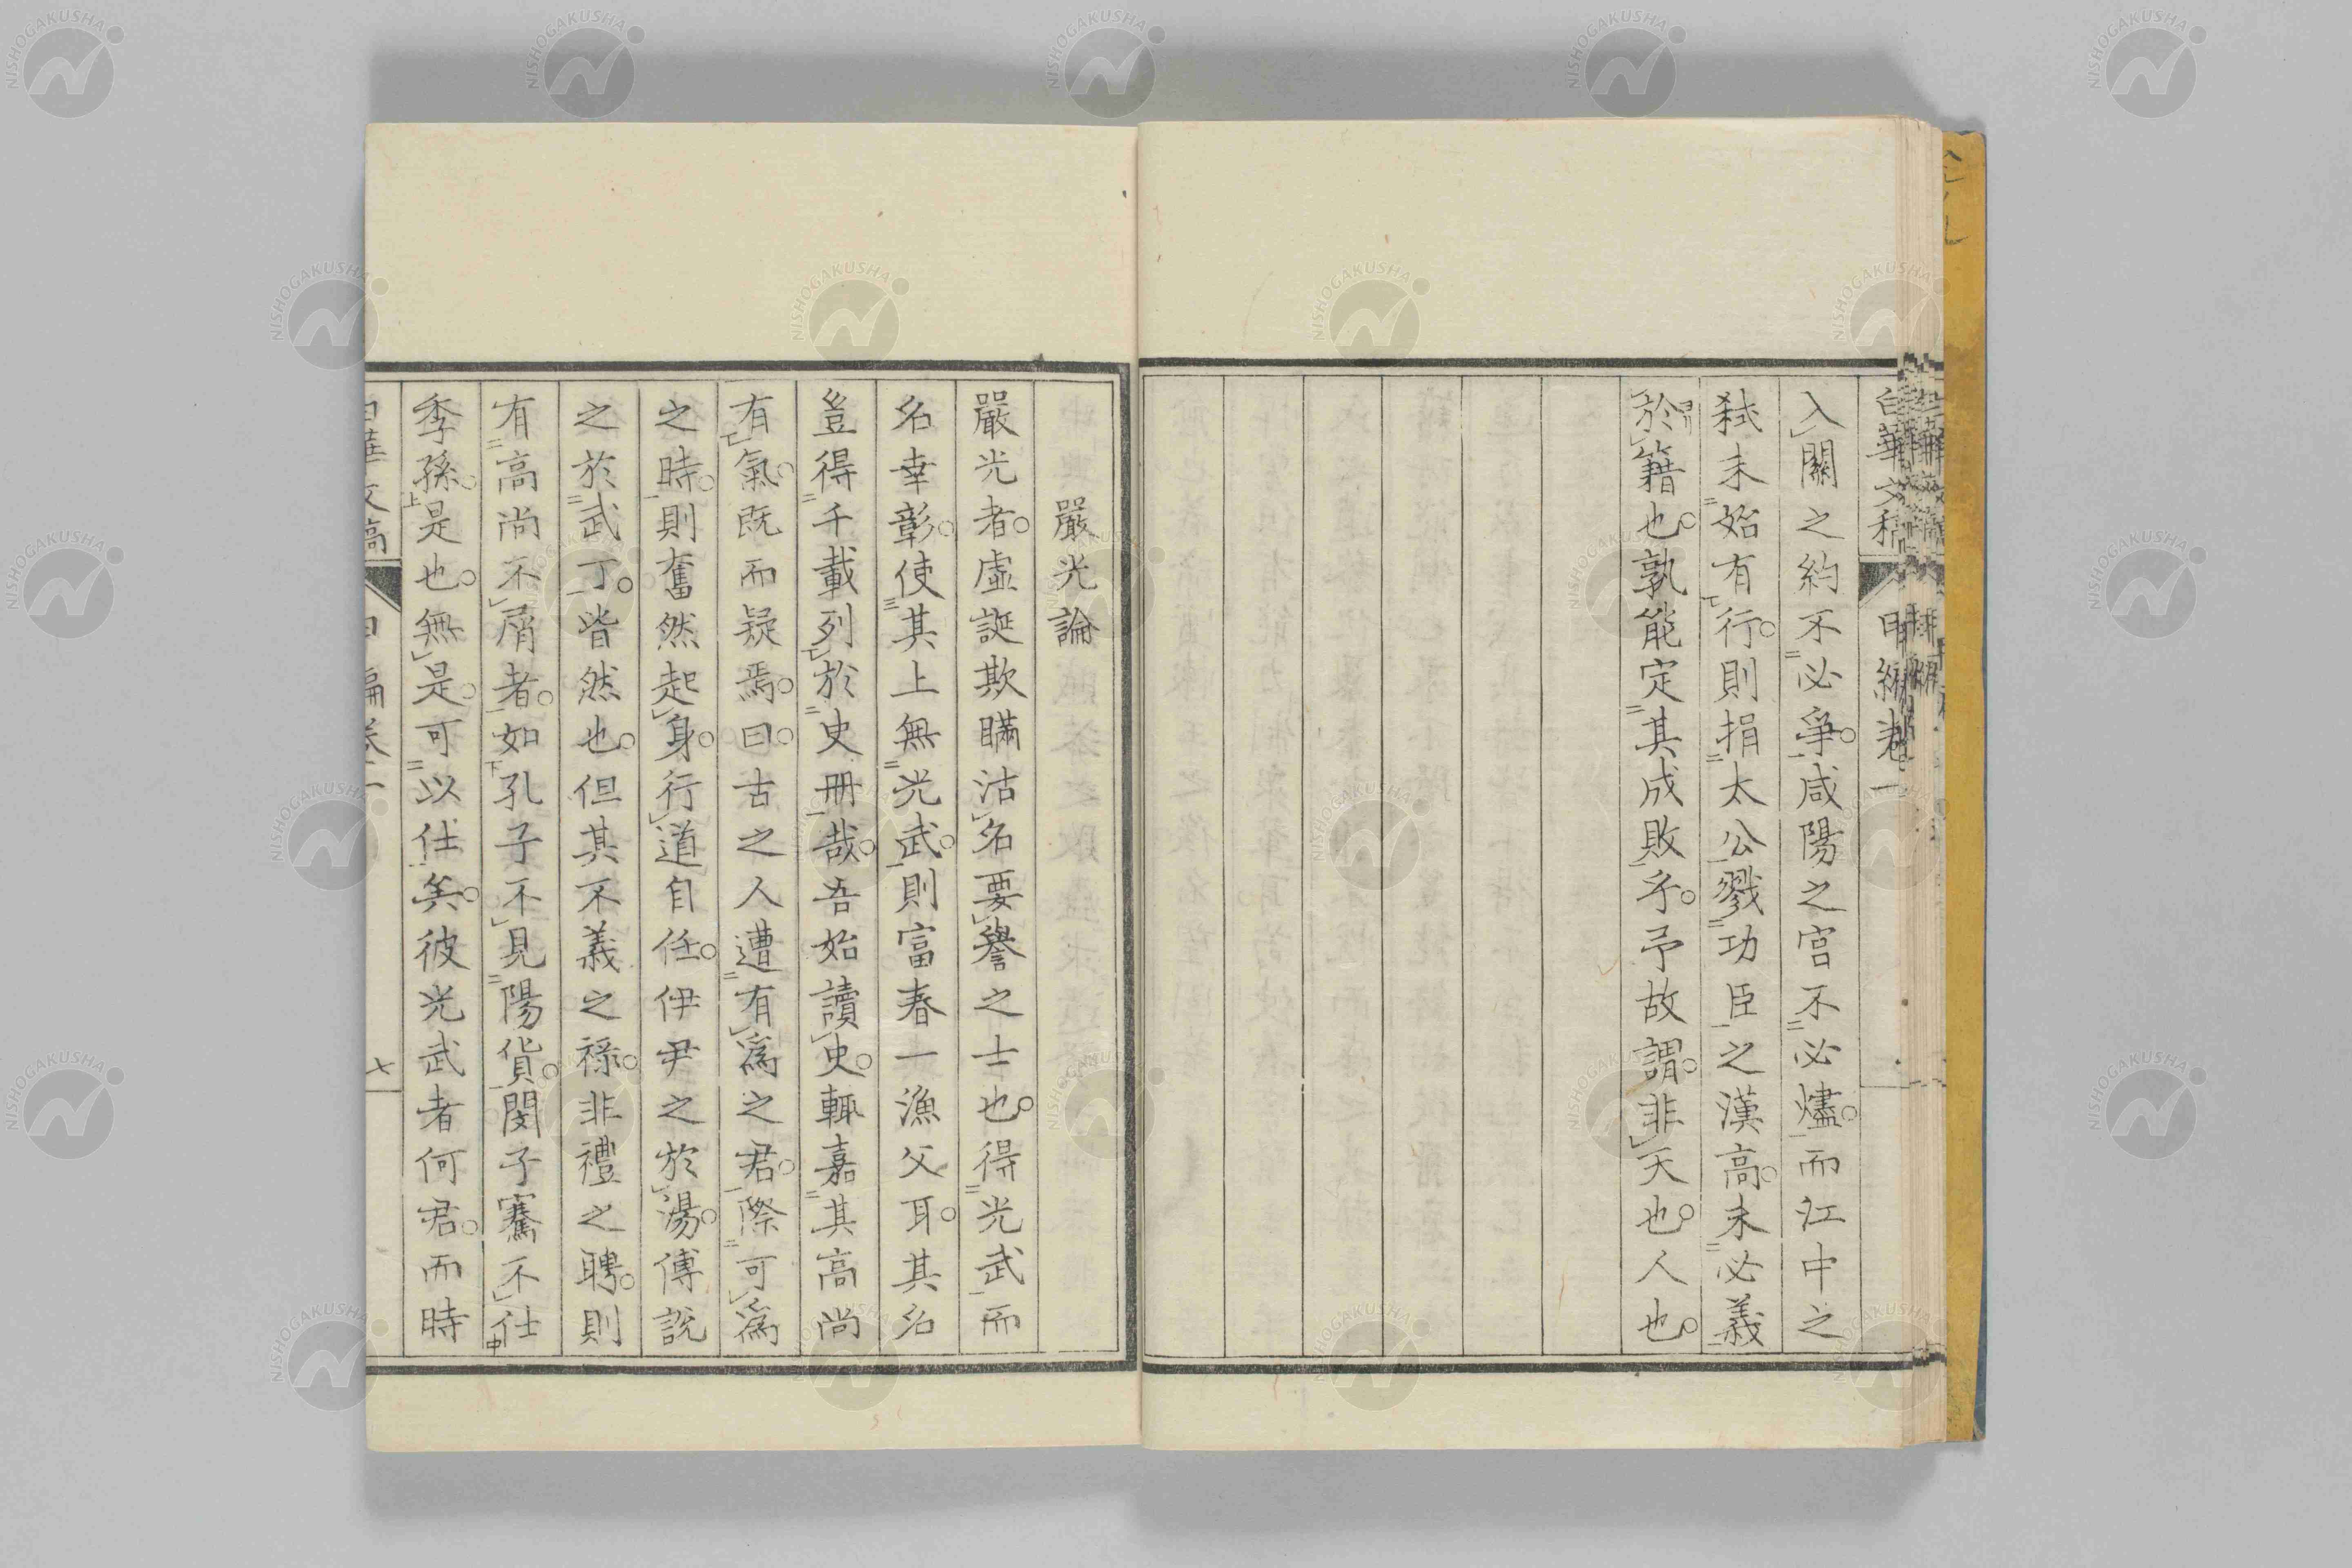 白華文稿 甲編卷一
入關之約不必爭咸陽之宮不必燼而江中之
弒未始有行則捐太公戮功臣之漢高未必義
於籍也孰能定其成敗乎予故謂非天也人也
嚴光論
嚴光者虛誕欺瞞沽名要譽之士也得光武而
名幸彰使其上無光武則富春一漁父耳其名
豈得千載列於史冊哉吾始讀史輒嘉其高尚
有氣既而疑焉曰古之人遭有爲之君際可爲
之時則奮然起身行道自任伊尹之於湯傅說
之於武丁皆然也但其不義之祿非禮之聘則
有高尚不屑者如孔子不見陽貨閔子騫不仕
季孫是也無是可以仕矣彼光武者何君而時
白華文稿 甲編卷一 七
NISHOGAKUSHA